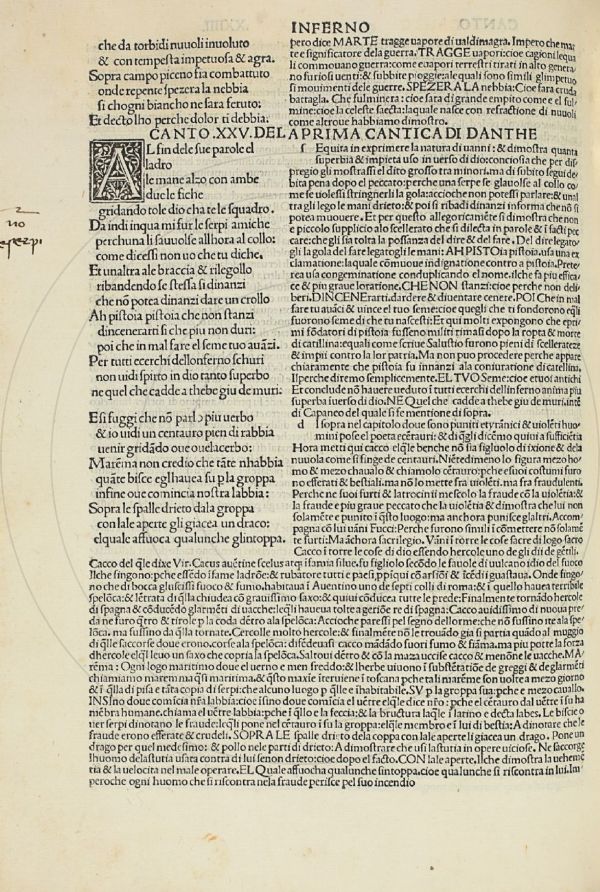 INFERNO
che da torbidi nuuoli inuoluto
& con tempesta impetuosa & agra.
Sopra campo piceno fra combattuto
onde repente spezera la nebbia
si chogni biancho ne sara feruto:
Et decto lho perche dolor ti debbia:
pero dice MARTE tragge uapore di ualdimagra. Impero che mar
te e significatore della guerra. TRAGGE uapori: cioe cagioni lequa
li commouano guerra: come euapori terrestri tirati in alto genera
no furiosi uenti: & subbite pioggie: alequali sono simili glimpetuo
si mouimenti dele guerre. SPEZERA LA nebbia: Cioe fara cruda
battagla. Che fulminera: cioe sara di grande empito come e el ful
mine: cioe la celeste saecta: laquale nasce con refractione di nuuoli
come aleroue habbiamo dimostro.
CANTO .XXV. DELA PRIMA CANTICA DI DANTHE
AL fin dele sue parole el
ladro
le mane alzo con ambe
due le fiche
gridando tole dio cha te le squadro.
Da indi inqua mi fur le serpi amiche
perchuna li sauuolse allhora al collo:
come dicessi non uo che tu diche.
Et unaltra ale braccia & rilegollo
ribandendo se stessa si dinanzi
che nõ potea dinanzi dare un crollo
Ah pistoia pistoia che non stanzi
dincenerarti si che piu non duri:
poi che in mal fare el seme tuo auãzi.
Per tutti ecerchi dellonferno schuri
non uidi spirto in dio tanto superbo
ne quel che cadde a thebe giu de muri:
Ei si fuggi che nõ parlo piu uerbo
& io uidi un centauro pien di rabbia
uenir gridãdo oue ouelacerbo:
Marẽma non credio che tãte nhabbia
quãte bisce eglhauea su p la groppa
infine oue comincia nostra labbia:
Sopra le spalle drieto dala groppa
con lale aperte gli giacea un draco:
elquale affuoca qualunche glintoppa.
f Equita in exprimere la natura di uanni: & dimostra quanta
superbia & impieta uso in uerso di dio: conciosia che per dis
pregio gli mostrassi el dito grosso tra minori. ma di subito segui de
bita pena dopo el peccato: perche una serpe se glauolse al collo co
me se uolessi stringnerli la gola: accioche non potessi parlare: & unal
tra gli lego le mani drieto: & poi si ribadi dinanzi informa che nõ si
potea muouere. Et per questo allegoricamẽte si dimostra che non
e piccolo supplicio alo scellerato che si dilecta in parole & i facti pec
care: che gli sia tolta la possanza del dire & del fare. Del dire legato
gli la gola del fare legatogli le mani: AH PISTOia pistoia. usa una ex
clamatione: laquale comoue indignatione contro a pistoia. Prete
rea usa congeminatione conduplicando el nome. ilche fa piu effica
ce & piu graue loratione. CHE NON stanzi: cioe perche non deli
beri. DINCENErarti. dardere & diuentare cenere. POI Che in mal
fare tu auãci & uince el tuo seme: cioe quegli che ti fondorono eqli
fuorono seme di che tu nascesti: Et qui molti expongono che epri
mi fõdatori di pistoia fusseno militri rimasi dopo la ropta & morte
di catillina: equali come scriue Salustio furono pieni di scellerateze
& impii contro la lor patria. Ma non puo procedere perche appare
chiaramente che pistoia fu innanzi ala coniuratione di catellina.
Ilperche diremo semplicemente. EL TVO Seme: cioe etuoi antichi
Et conclude nõ hauere ueduto i tutti ecerchi dellinferno anima piu
superba iuerso di dio. NE Quel che cadde a thebe giu de muri. intẽ
di Capaneo del quale si fe mentione di sopra.
d I sopra nel capitolo doue sono puniti etyrãnici & uiolẽti huo
mini pose el poeta ecẽtauri: & di qgli dicẽmo quiui a sufficiẽtia
Hora metti qui cacco elqle benche nõ sia figluolo di ixione & dela
nuuola come si finge de centauri. Niẽtedimeno lo figura mezo ho
mo & mezo chauallo & chiamolo cẽtauro: pche esuoi costumi furo
no efferati & bestiali. ma nõ lo mette fra uiolẽti. ma fra fraudulenti.
Perche ne suoi furti & latrocinii mescolo la fraude cõ la uiolẽtia: &
la fraude e piu graue peccato che la uiolẽtia & dimostra che lui non
solamẽte e punito i qsto luogo: ma anchora punisce glaltri. Accom
pagna cõ lui uãni Fucci: Perche furono simili i cõmettere nõ solamẽ
te furti: Ma ãchora sacrilegio. Vãni i torre le cose sacre di logo sacro
Cacco i torre le cose di dio essendo hercole uno de gli dii de gẽtili.
Cacco del qle dixe Vir. Cacus auẽtine scelus atqi ifamia silue. fu figliolo secõdo le fauole di uulcano idio del fuoco
Ilche singono: pche essẽdo ifame ladrõe: & rubatore tutti e paesi, ppi qui cõ arsiõi & icẽdii guastaua. Onde fingo/
no che di bocca gluscissi fuoco & fumo, habitaua i Auentino uno de septi colli di roma: & i quello hauea terribile
spelõca: & lẽtrata di qlla chiudea cõ grauissimo saxo: & quiui cõdicea tutte le prede: Finalmente tornãdo hercole
di spagna & cõducẽdo glarmẽti di uacche: leqli haueua tolte a geriõe re di spagna: Cacco auidissimo di nuoua pre/
da ne furo qtro & tirole p la coda dẽtro ala spelõca: Accioche paressi pel segno dellorme: che nõ fussino ite ala spe
lõca. ma fussino da qlla tornate. Cercolle molto hercole: & finalmẽte nõ le trouãdo gia si partia quãdo al muggio
di qlle saccorse doue erono. corse ala spelõca: difẽdeuasi cacco mãdado fuori fumo & fiãma. ma piu porte la forza
dhercole elqli leuo un saxo che copria la spelõca. Saltoui dẽtro & cõ la maza uccise cacco & menõne le uacche. MA
rẽma: Ogni logo maritimo doue el uerno e men freddo: & lherbe uiuono i substẽtatiõe de greggi & deglarmẽti
chiamiamo marema qsi maritima. & qsto maxie iteruiene i toscana pche tali mareme son uolte a mezo giorno
& i qlla di pisa e tãta copia di serpi: che alcuno luogo p qlle e ihabitabile. SV p la groppa sua: pche e mezo cauallo.
INSIno doue comicia nra labbia: cioe isino doue comicia el uẽtre elqle dice nro: pche el cẽtauro dal uẽtre i su ha
mẽbra humane. chiama el uẽtre labbia: pche i qllo e la feccia: & la bructura laqle i latino e decta labes. Le biscie o
uer serpi dinotano le fraude: leqli pone nel cẽtauro i su la groppa: elqle membro e i lui di bestia: A dinotare che le
fraude erono efferate & crudeli. SOPRA LE spalle drieto dela coppa con lale aperte li giacea un drago. Pone un
drago per quel medesimo: & pollo nele parti di drieto: A dimostrare che usi lastutia in opere uiciose. Ne saccorge
lhuomo delastutia usata contro di lui senon drieto: cioe dopo el facto. CON lale aperte. Ilche dimostra la uehemẽ
tia & la uelocita nel male operare. EL Quale affuocha qualunche sintoppa. cioe qualunche si riscontra in lui. Im
peroche ogni huomo che si riscontra nela fraude perisce pel suo incendio